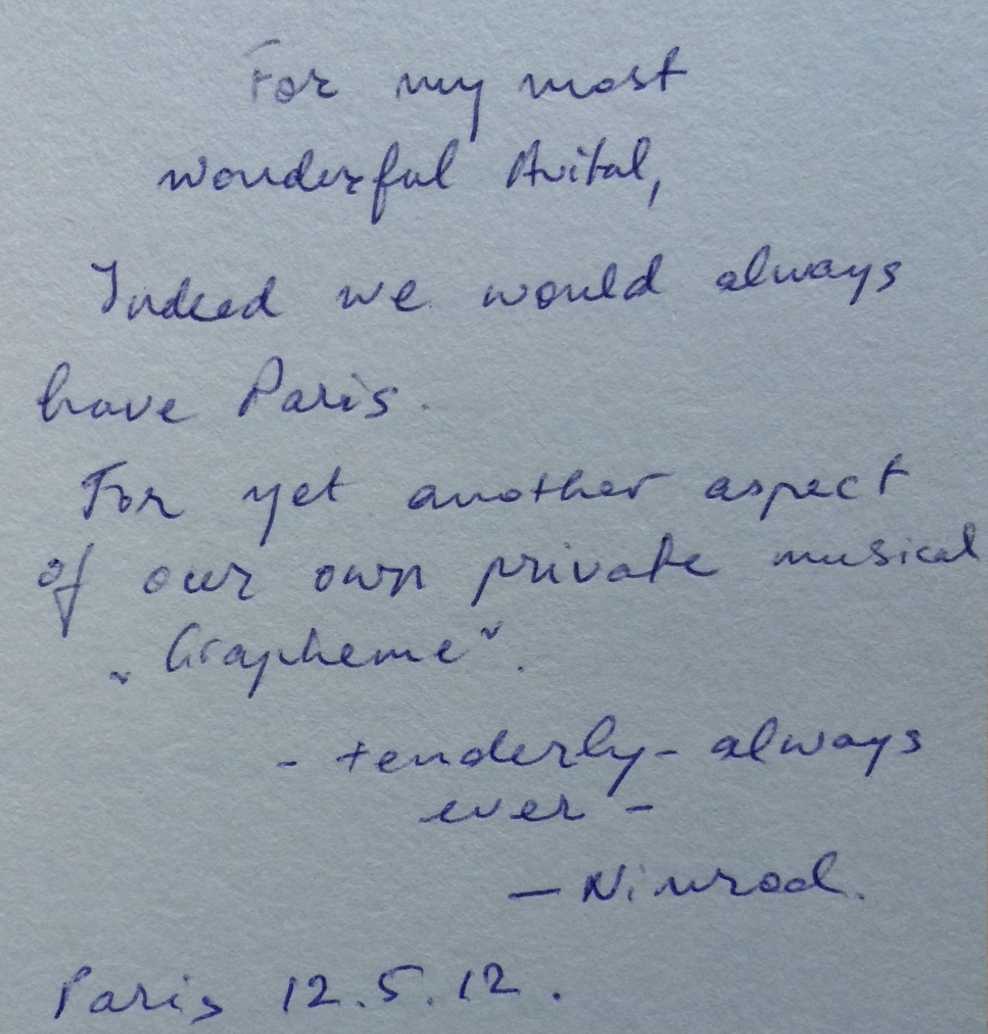 For my most
wonderful Avital,
Indeed we would always
have Paris.
For yet another aspect
of our own private musical
„Grapheme".
- tenderly - always
ever -
— Nimrod.
Paris 12.5.12.